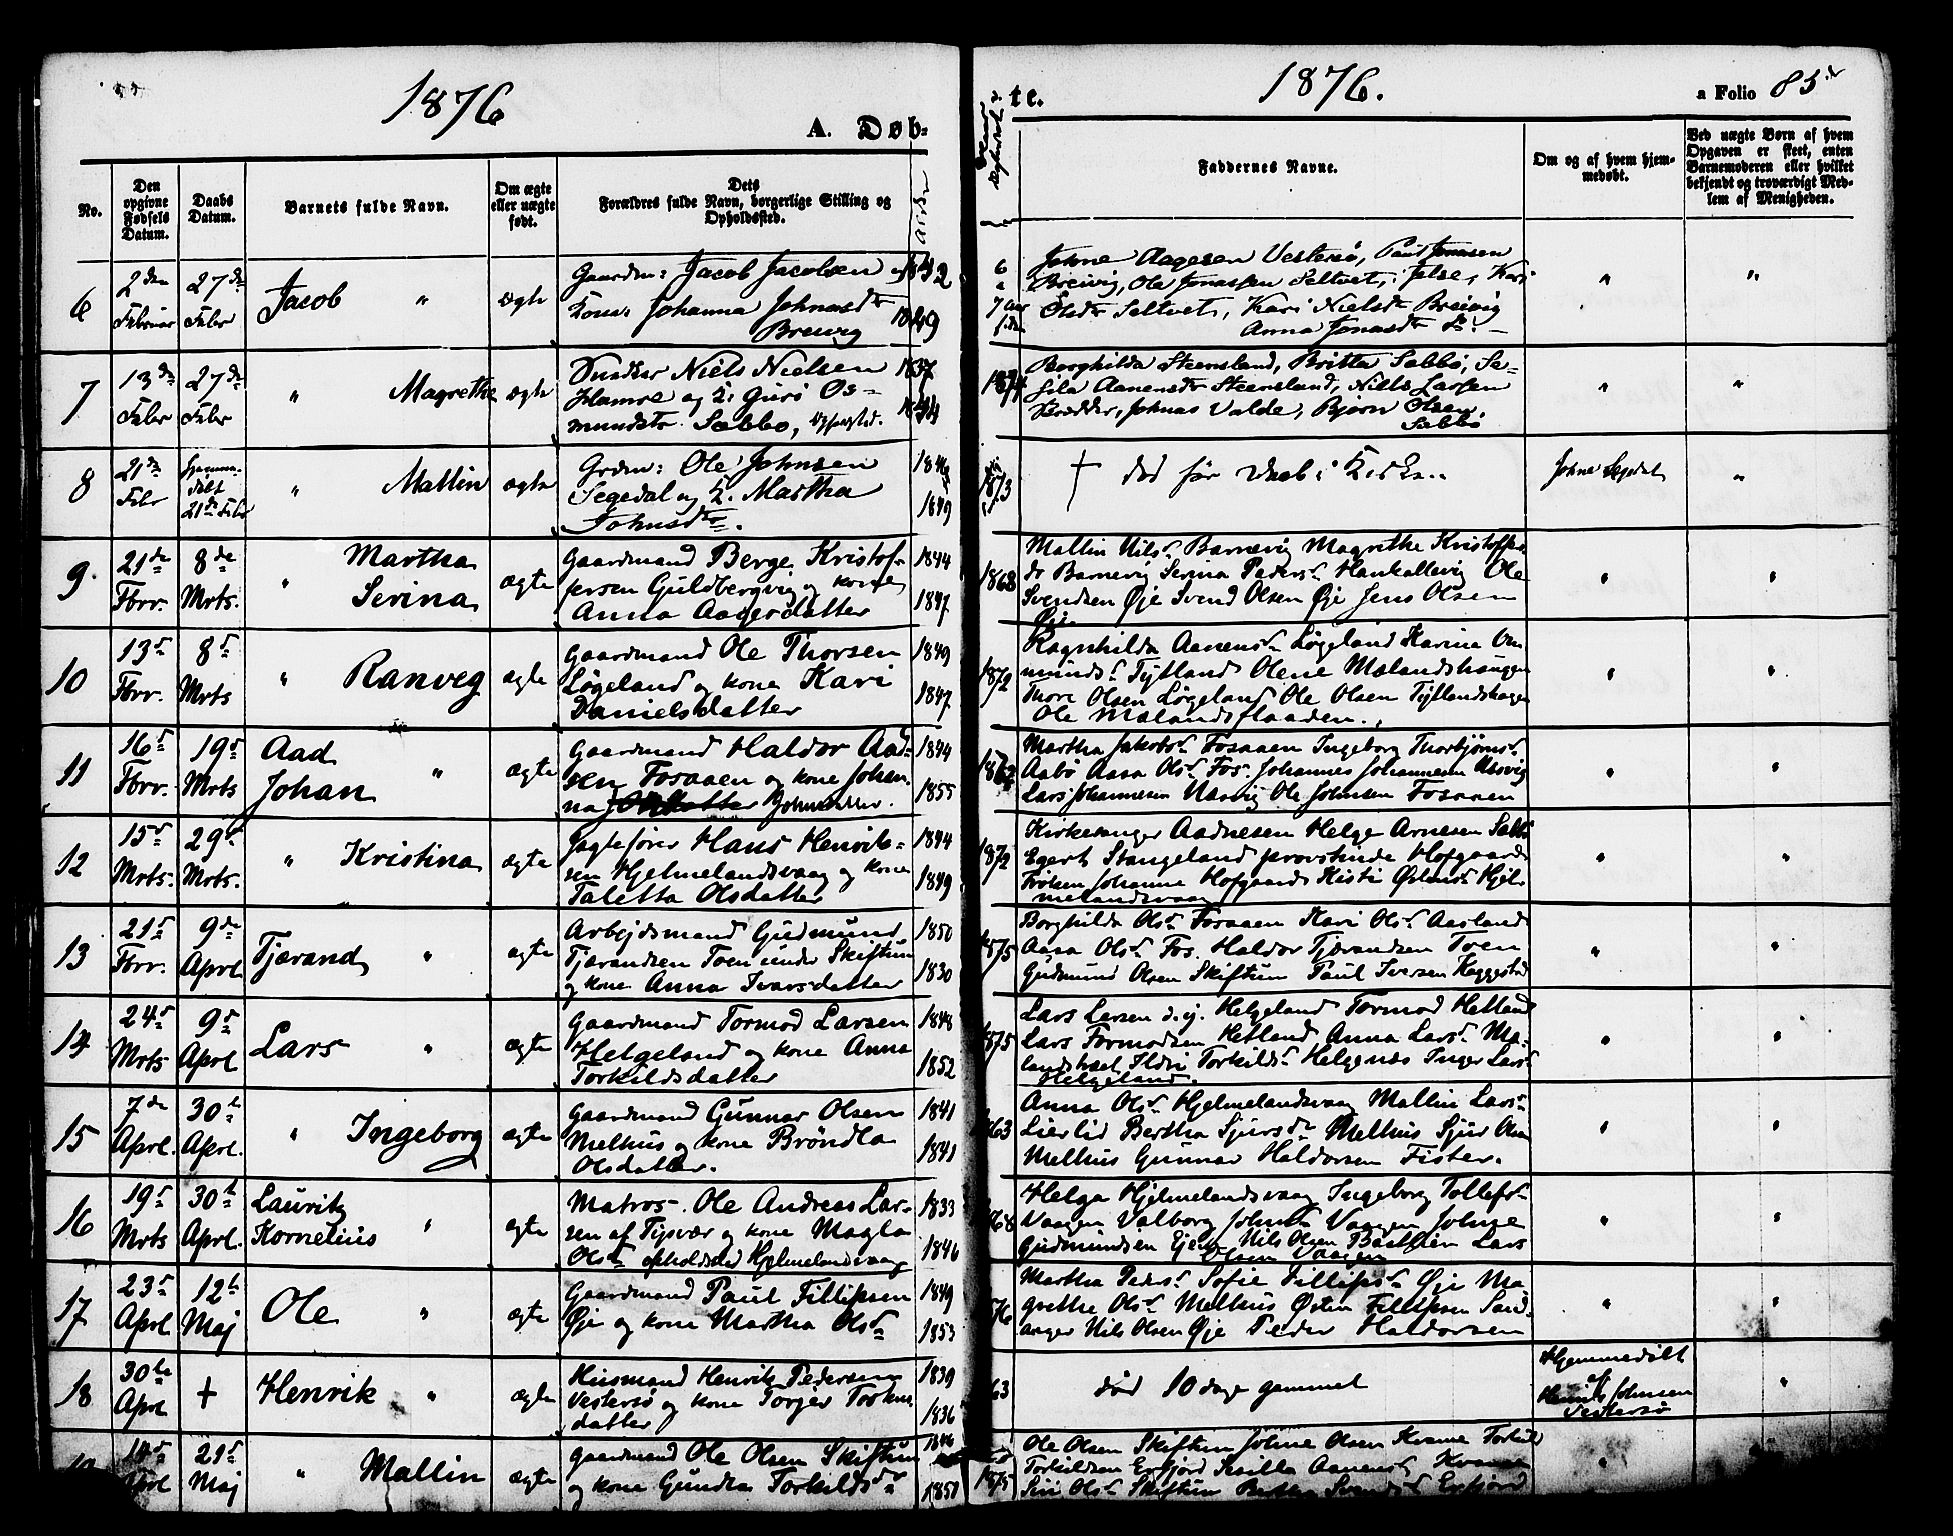 1876
A. Døb-
No.
Den opgivne Fødsels Datum.
Daabs Datum.
Barnets fulde Navn.
Om ægte eller uægte født.
Dets Forældres fulde Navn, borgerlige Stilling og Opholdssted.
te.
1876.
a Folio 85
Faddernes Navne.
Om og af hvem hjemmedøbt.
Ved uægte Børn af hvem Opgaven er skeet, enten Barnemoderen eller hvilket bekjendt og troværdigt Medlem af Menigheden.
6
2den Februar
27de Febr
Jacob "
ægte
Gaardm: Jacob Jacobsen og
Kone Johanna Johnasdr
Breivig
1849
Johne Aagesen Vestersø, Paul Jonasen
Breivig, Ole Jonassen Seltvet, i Jelse, Kari
Olsdr Seltvet, Kari Nielsdr Breivig
Anna Jonasdr
" "
7
13de Febr
27de Febr
" Magrethe
ægte
Niels Nielsen
Hamre og K. Guri Os-
mundsdr Sæbbø,
1837
1874
Borghilda Steensland, Britta Sæbbø, Se-
sila Aanensdr Steensland, Nills Larsen
Johnas Valde, Bjørn Olsen
Sæbbø
" "
8
21de Febr
Hjemmedøbt 21de Febr
" Mallin
ægte
Grdm: Ole Johnsen
Segedal og K. Martha
Johnsdr.
1846
1849
1873
† død før Daab i Kirken.
Johne Segedal
"
9
21de Fbrr.
8de Mrts.
" Martha
Serina
ægte
Gaardmand Berge Kristof-
fersen Guldbergvig og kone
Anna Aagesdatter
1844
1847
1868
Mallin Nilsd. Barnevig Magrethe Kristoffers-
dr Barnevig Serina Pedersd. Hankallevig Ole
Svendsen Øje Svend Olsen Øje Jens Olsen
Øje
" "
10
13d Fbrr.
8d Mrts
" Ranveg
ægte
Gaardmand Ole Thorsen
Løgeland og kone Kari
Danielsdatter
1849
1847
1872
Ragnhilda Aanensd. Løgeland Karina Om-
mundsd. Tytland Olene Mælandshaugen
Thore Olsen Løgeland Ole Olsen Tytlandshagen
Ole Mælandsflaaden.
" "
11
16d Fbrr.
19d Mrts
Aad
Johan "
ægte
Gaardmand Haldor Aad-
sen Fosaaen og kone Johan-
na Johnsdatter.
1844
1855
1862
Martha Jakobsd. Fosaaen Ingeborg Thorbjørnsd.
Aabø Aasa Olsd. Fos. Johannes Johannesen Næsvig
Lars Johannesen Næsvig Ole Johnsen Fosaaen
" "
12
15d Mrts.
29d Mrts.
" Kristina
ægte
Jagtefører Hans Henrik-
sen Hjelmelandsvaag og kone
Taletta Olsdatter
1844
1849
1872
Kirkesanger Aadnesen Helge Arnesen
Egert Stangeland provstinde Hofgaard
Frøken Johanne Hofgaard Kisti Østensd. Hjel-
melandsvaag
" "
13
21d Fbrr.
9de Aprl.
Tjærand "
ægte
Arbejdsmand Gudmund
Tjærandsen Toen under Skiftun
og kone Anna Ivarsdatter
1850
1830
1875
Borghilda Olsd. Fosaaen Kari Olsd. Aasland
Aasa Olsd. Fos. Haldor Tjærandsen Toen
Gudmund Olsen Skiftun Paul Iversen Kaggestad
" "
14
24d Mrts
9d Aprl
Lars "
ægte
Gaardmand Tormod Larsen
Helgeland og kone Anna
Torkildsdatter
1848
1852
1875
Lars Larsen d.y. Helgeland Tormod Hetland
Lars Tormodsen Hetland Anna Larsd. Mæ-
Ildri Torkildsd. Helgenæs Inger Larsd.
Helgeland.
" "
15
7de Aprl.
30t Aprl.
" Ingeborg
ægte
Gaardmand Gunnar Olsen
Melhus og kone Brøndla
Olsdatter.
1841
1841
1863
Anna Olsd. Hjelmelandsvaag Mallin Larsd.
Lierlid Bertha Sjursd. Melhus Sjur Olsen
Melhus Gunnar Haldorsen Fister.
" "
16
19d Mrts
30t Aprl.
Lauritz
Kornelius "
ægte
Matros Ole Andreas Lar-
sen af Tysvær og kone Magla
Olsd. opholdssted Hjelmelandsvaag
1833
1846
Helga Hjelmelandsvaag Ingeborg Tollefsd.
Vaagen Valborg Johnsd. Vaagen Johne
Gudmundsen Nils Olsen Lars
Olsen Vaagen
" "
17
23d Aprl
12t Maj
Ole "
ægte
Gaardmand Paul Fillipsen
Øje og kone Martha Olsd.
1849
1853
1876
Martha Pedersd. Sofie Fillipsd. Øje Ma-
grethe Olsd. Melhus Østen Fillipsen Sand-
anger Nils Olsen Øje Peder Haldorsen
" "
18
30te Aprl
†
Henrik "
ægte
Husmand Henrik Pedersen
Vestersø og kone Torger Torkils-
datter
1839
1836
63
død 10 dage gammel
Hjemmedøbt
af
Henrik Johnsen
Vestersø
"
14d Aprl
21d Maj
" Mallin
ægte
Gaardmand Ole Olsen Skiftun
og kone Gundla Torkildsd.
1846
1851
1875
Ole Olsen Skiftun Johne Olsen Kvame Torkild
Torkildsen Erfjord Sesilla Aanensd. Kvame
Siri Olsd. Skiftun Bertha Svendsd. Erfjord
"